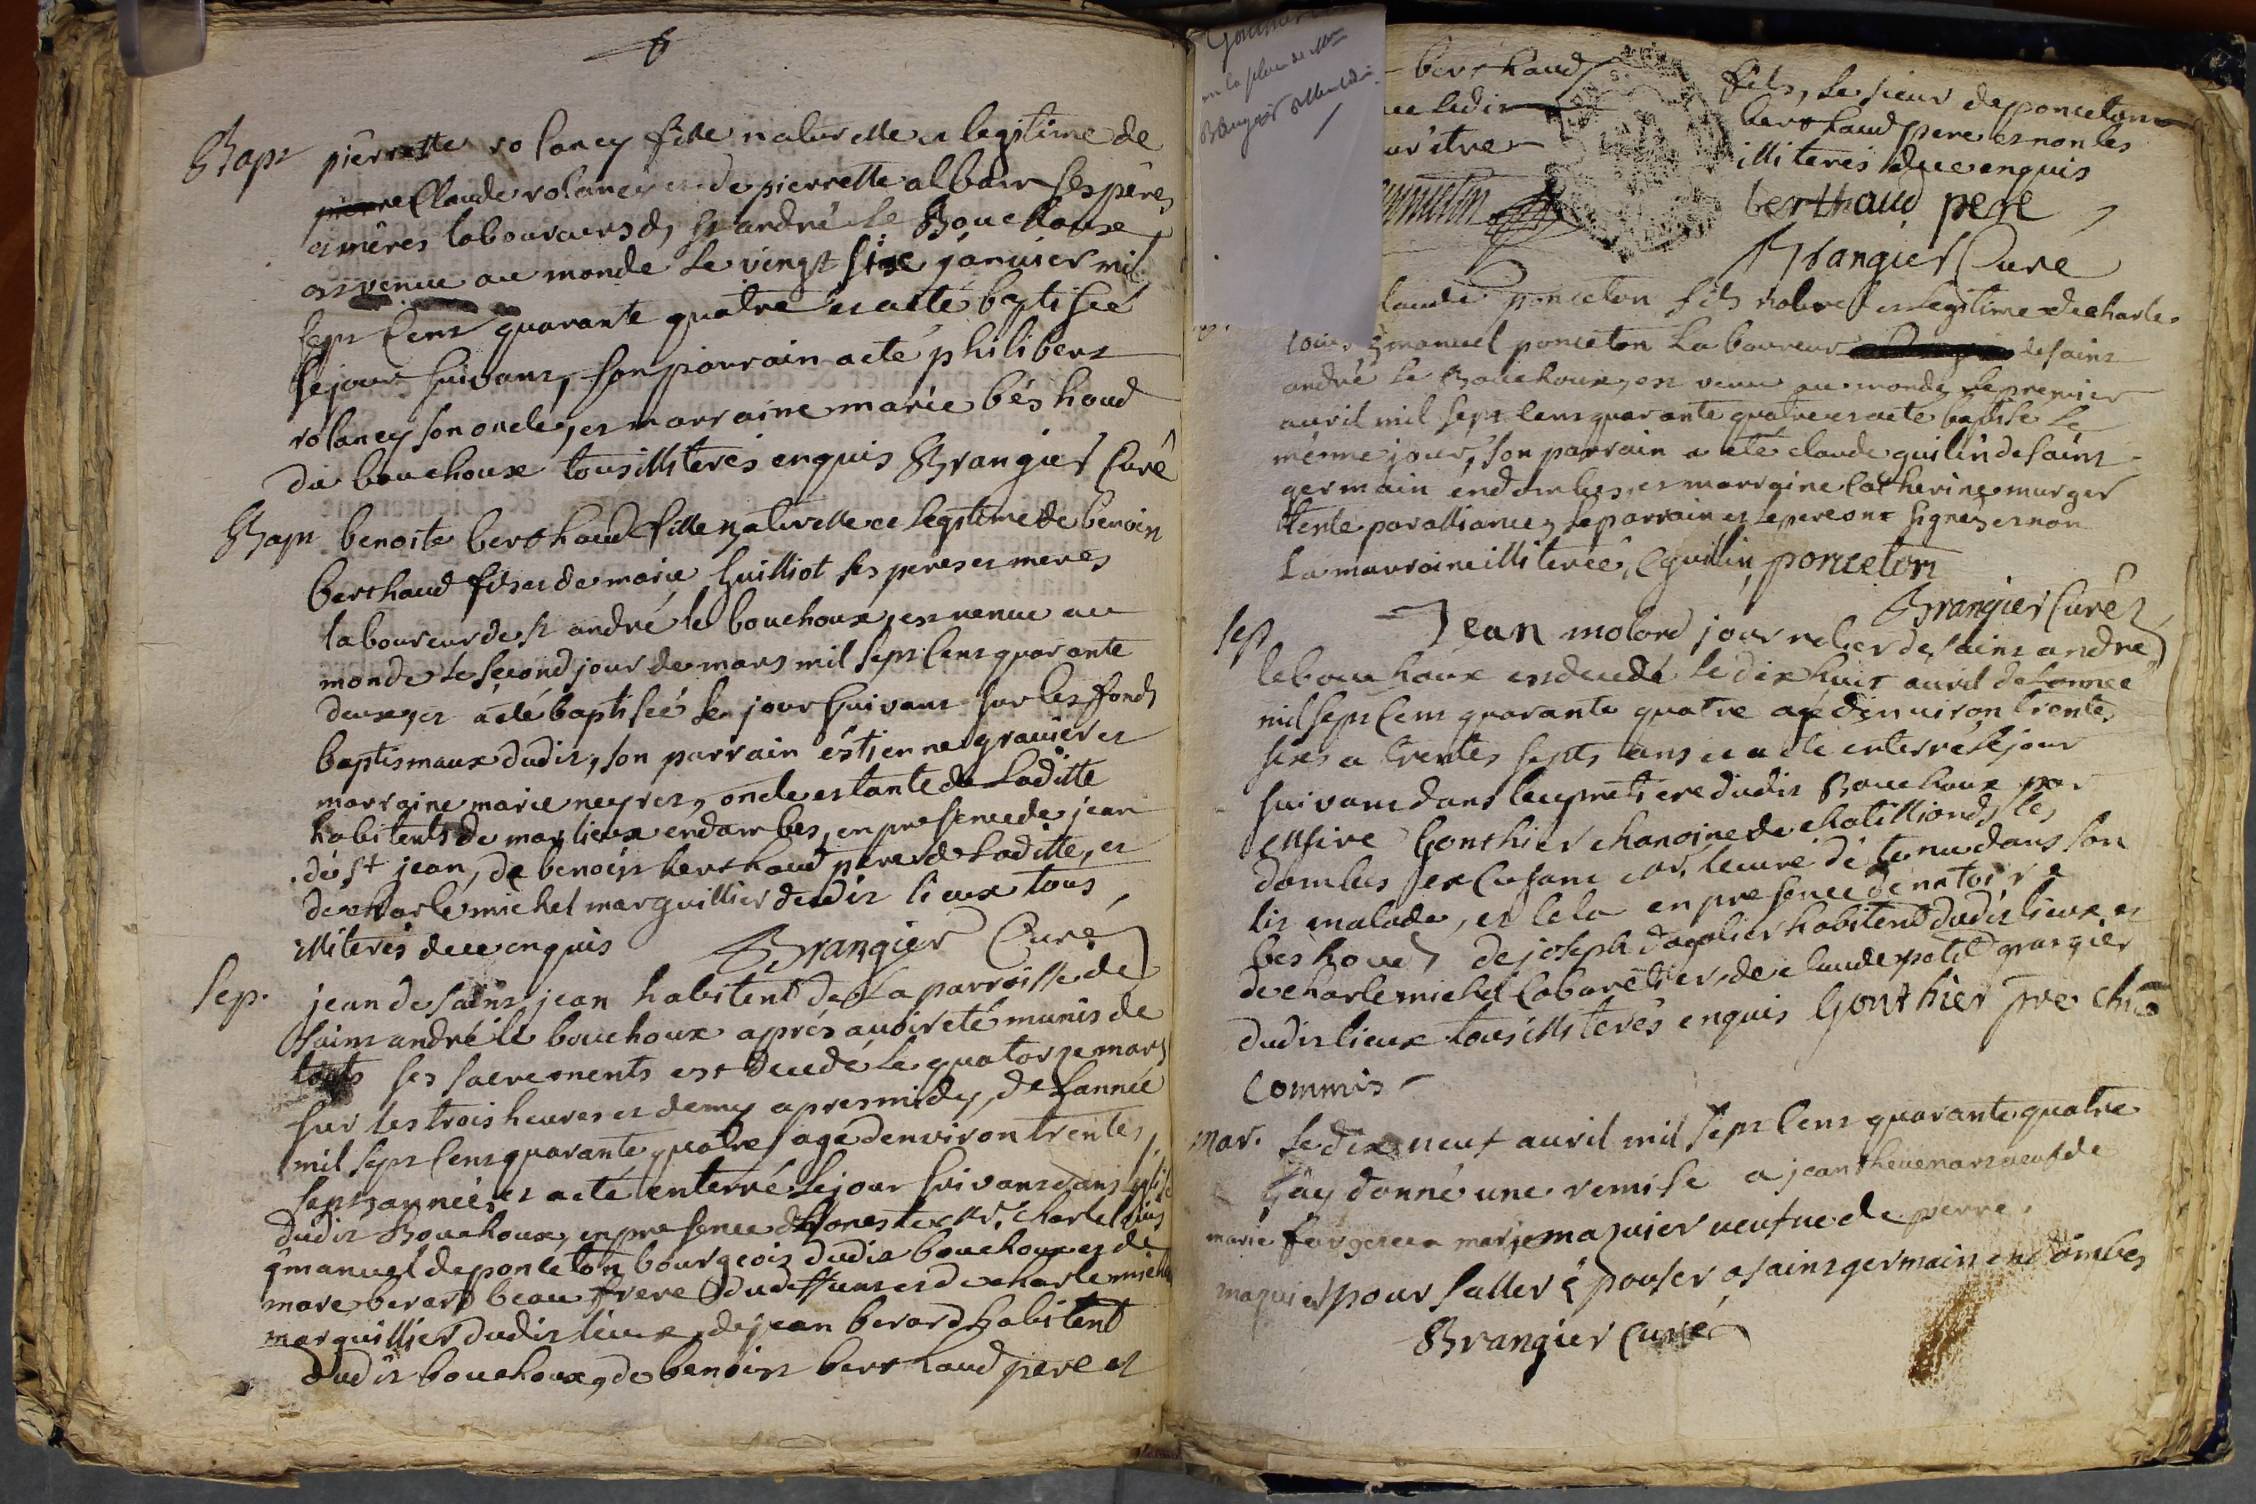 6
Bapt pierrette rolancy fille naturelle et legitime de
Claude rolancy et de pierrette albain ses pères
et mères laboureurs de st andré le Bouchoux
est venue au monde le vingt six janvier mil
sept cent quarante quatre et a eté baptisée
le jour suivant, son parrain a eté philibert
rolancy son oncle, et marraine marie béshoud
du bouchoux tous illiterés enquis Brangier Curé
Bapt benoite berthaud fille naturelle et legitime de benoist
berthaud fils et de marie guilliot ses peres et meres
laboureur de st andré le bouchoux, est venue au
monde le second jour de mars mil sept cent quarante
deux, et a eté baptisée le jour suivant sur les fonds
baptismaux dudit, son parrain éstienne gravier et
marraine marie neyret, oncle et tante de Laditte
habitents de marlieux éndombes, en presence de jean
de st jean, de benoist berthaud pere de Laditte, et
de charle michel marguillier dudit lieux tous
illiterés de ce enquis Brangier Curé
Sep. jean de saint jean habitent de La parroisse de
saint andré le bouchoux aprés avoir eté munis de
touts ses sacrements est decedé le quatorze mars
sur les trois heures et demy apresmidy, de Lannée
mil sept cent quarante quatre agé denviron trente
sept année, et a eté enterré le jour suivant dans
dudit Bouchoux, en presence dhoneste Mr. Charle louis
émanuel de ponceton bourgeois dudit bouchoux et de
marc berard beau frere dudeffunt et de charle michel
marguillier dudit lieux, de jean berard habitent
dudit bouchoux, de benoist berthaud pere et
en la place de Mr
Brangier
berthaud
fils, le sieur deponceton
berthaud pere et non les
illiterés de ce enquis
ponceton
berthaud pere
Brangier Curé
claude ponceton fils naturel et legitime de charle
louis émanuel ponceton Laboureur de saint
andré le Bouchoux, est venu au monde le premier
avril mil sept cent quarante quatre et a eté baptisé le
même jour, son parrain a eté claude quilin de saint
germain endombes, et marraine Catherine murger
tente par alliance, le parrain et le pere ont signés et non
La marraine illiterée, Cquilin, ponceton
Brangier Curé
Sep Jean molard journelier de saint andré
le bouchoux est decedé le dix huit avril de Lannée
mil sept cent quarante quatre agé denviron trente
sixs a trentes septs ans et a eté enterré le jour
suivant dans le cymetiere dudit Bouchoux par
messire Gonthier chanoine de chatillion les
dombes sexcusant Mr. le curé détenu dans son
lit malade, et cela en presence de
béshoud de joseph dagallier habitent dudit lieux et
de charle michel Cabaretier, de claude petit grangier
dudit lieux tous illiterés enquis Gonthier pre
Commis
mar. Le dix neuf avril mil sept cent quarante quatre
jay donné une remise a jean thevenart veuf de
marie fargere a marie mazuier veufve de pierre
mazuier pour saller épouser a saint germain endombes
Brangier Curé